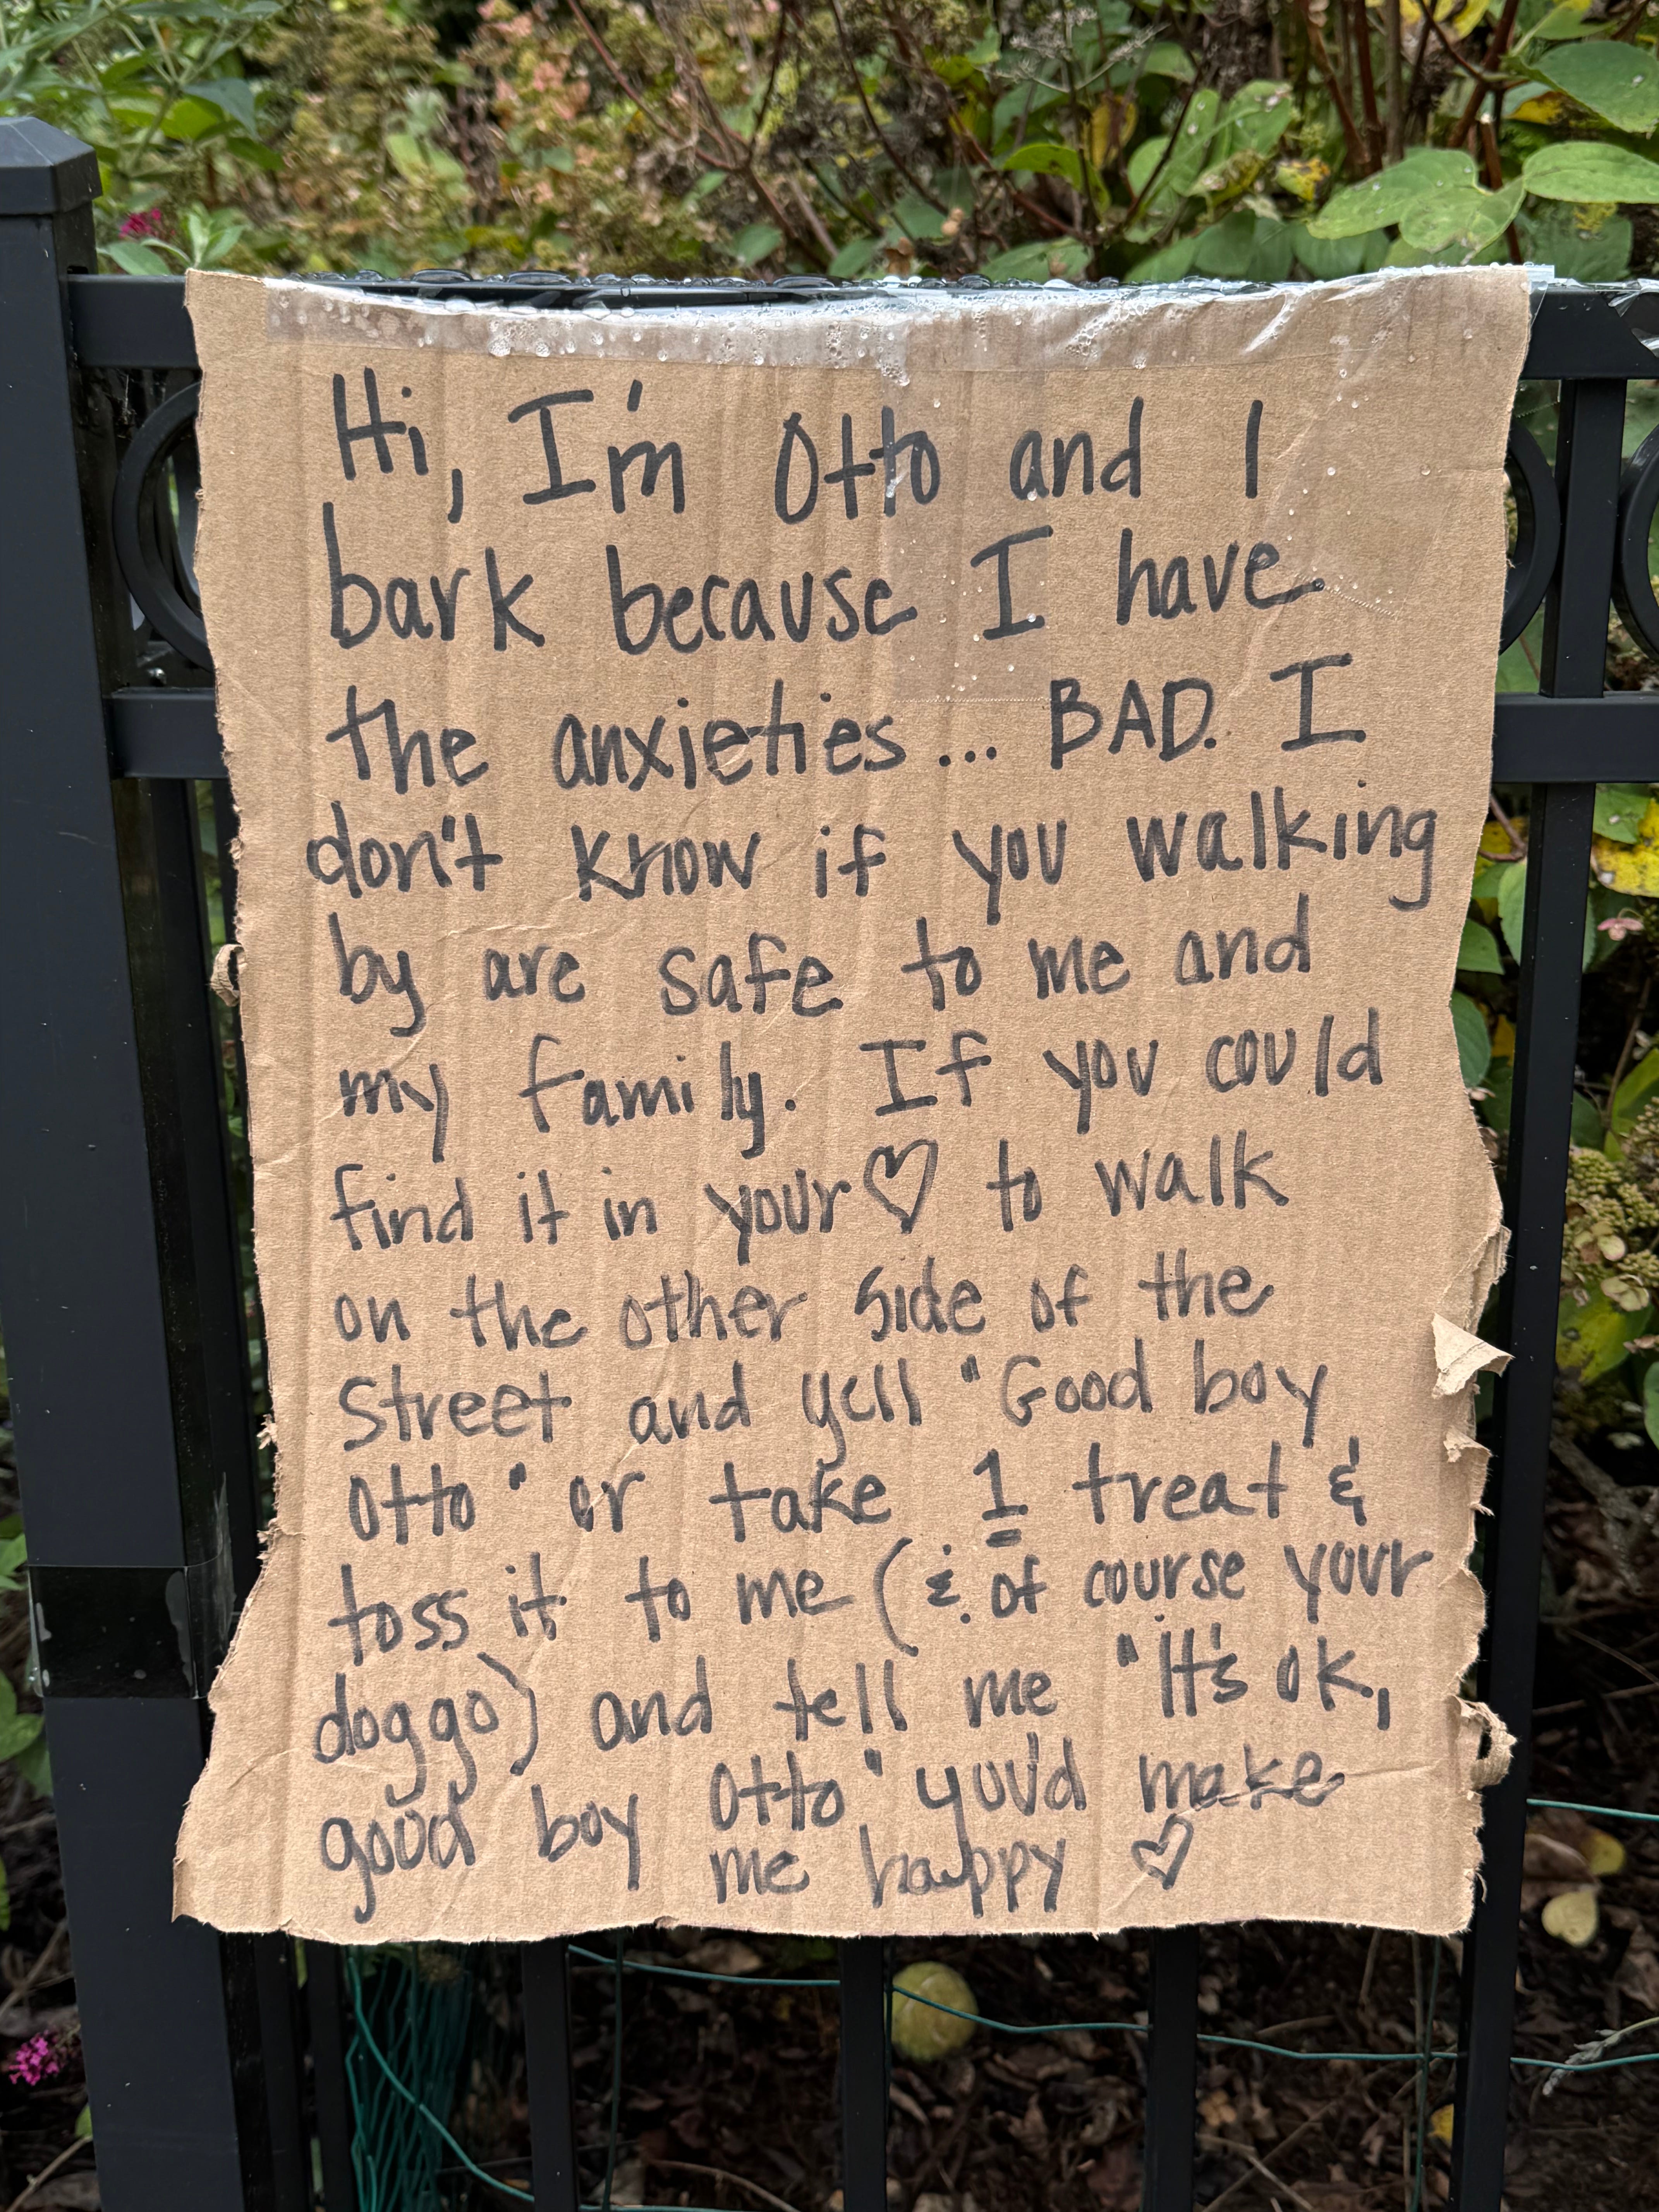 Hi, I'm Otto and I
bark because I have
the anxieties... BAD. I
don't know if you walking
by are safe to me and
my family. If you could
find it in your ♡ to walk
on the other side of the
street and yell "Good boy
Otto" or take 1 treat &
toss it to me (& of course your
doggo) and tell me "It's ok,
good boy Otto" you'd make
me happy ♡